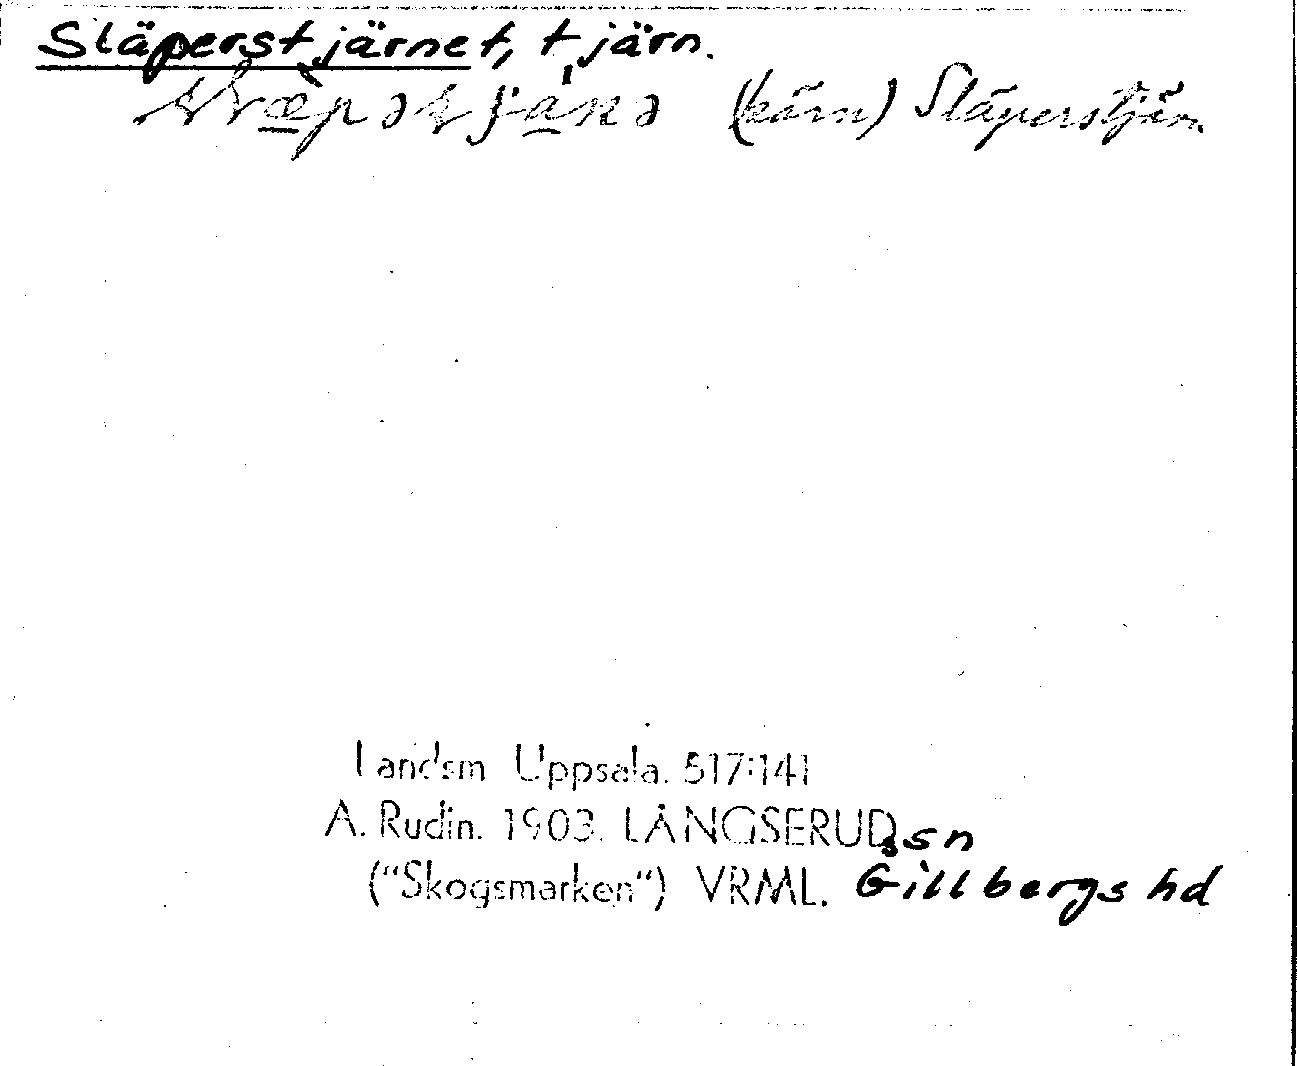 Släperstjärnet, tjärn.
(kärn) Släperstjärn
Landsm Uppsala. 517:141
A. Rudin. 1903. LÅNGSERUDs sn
("Skogsmarken") VRML. Gillbergs hd